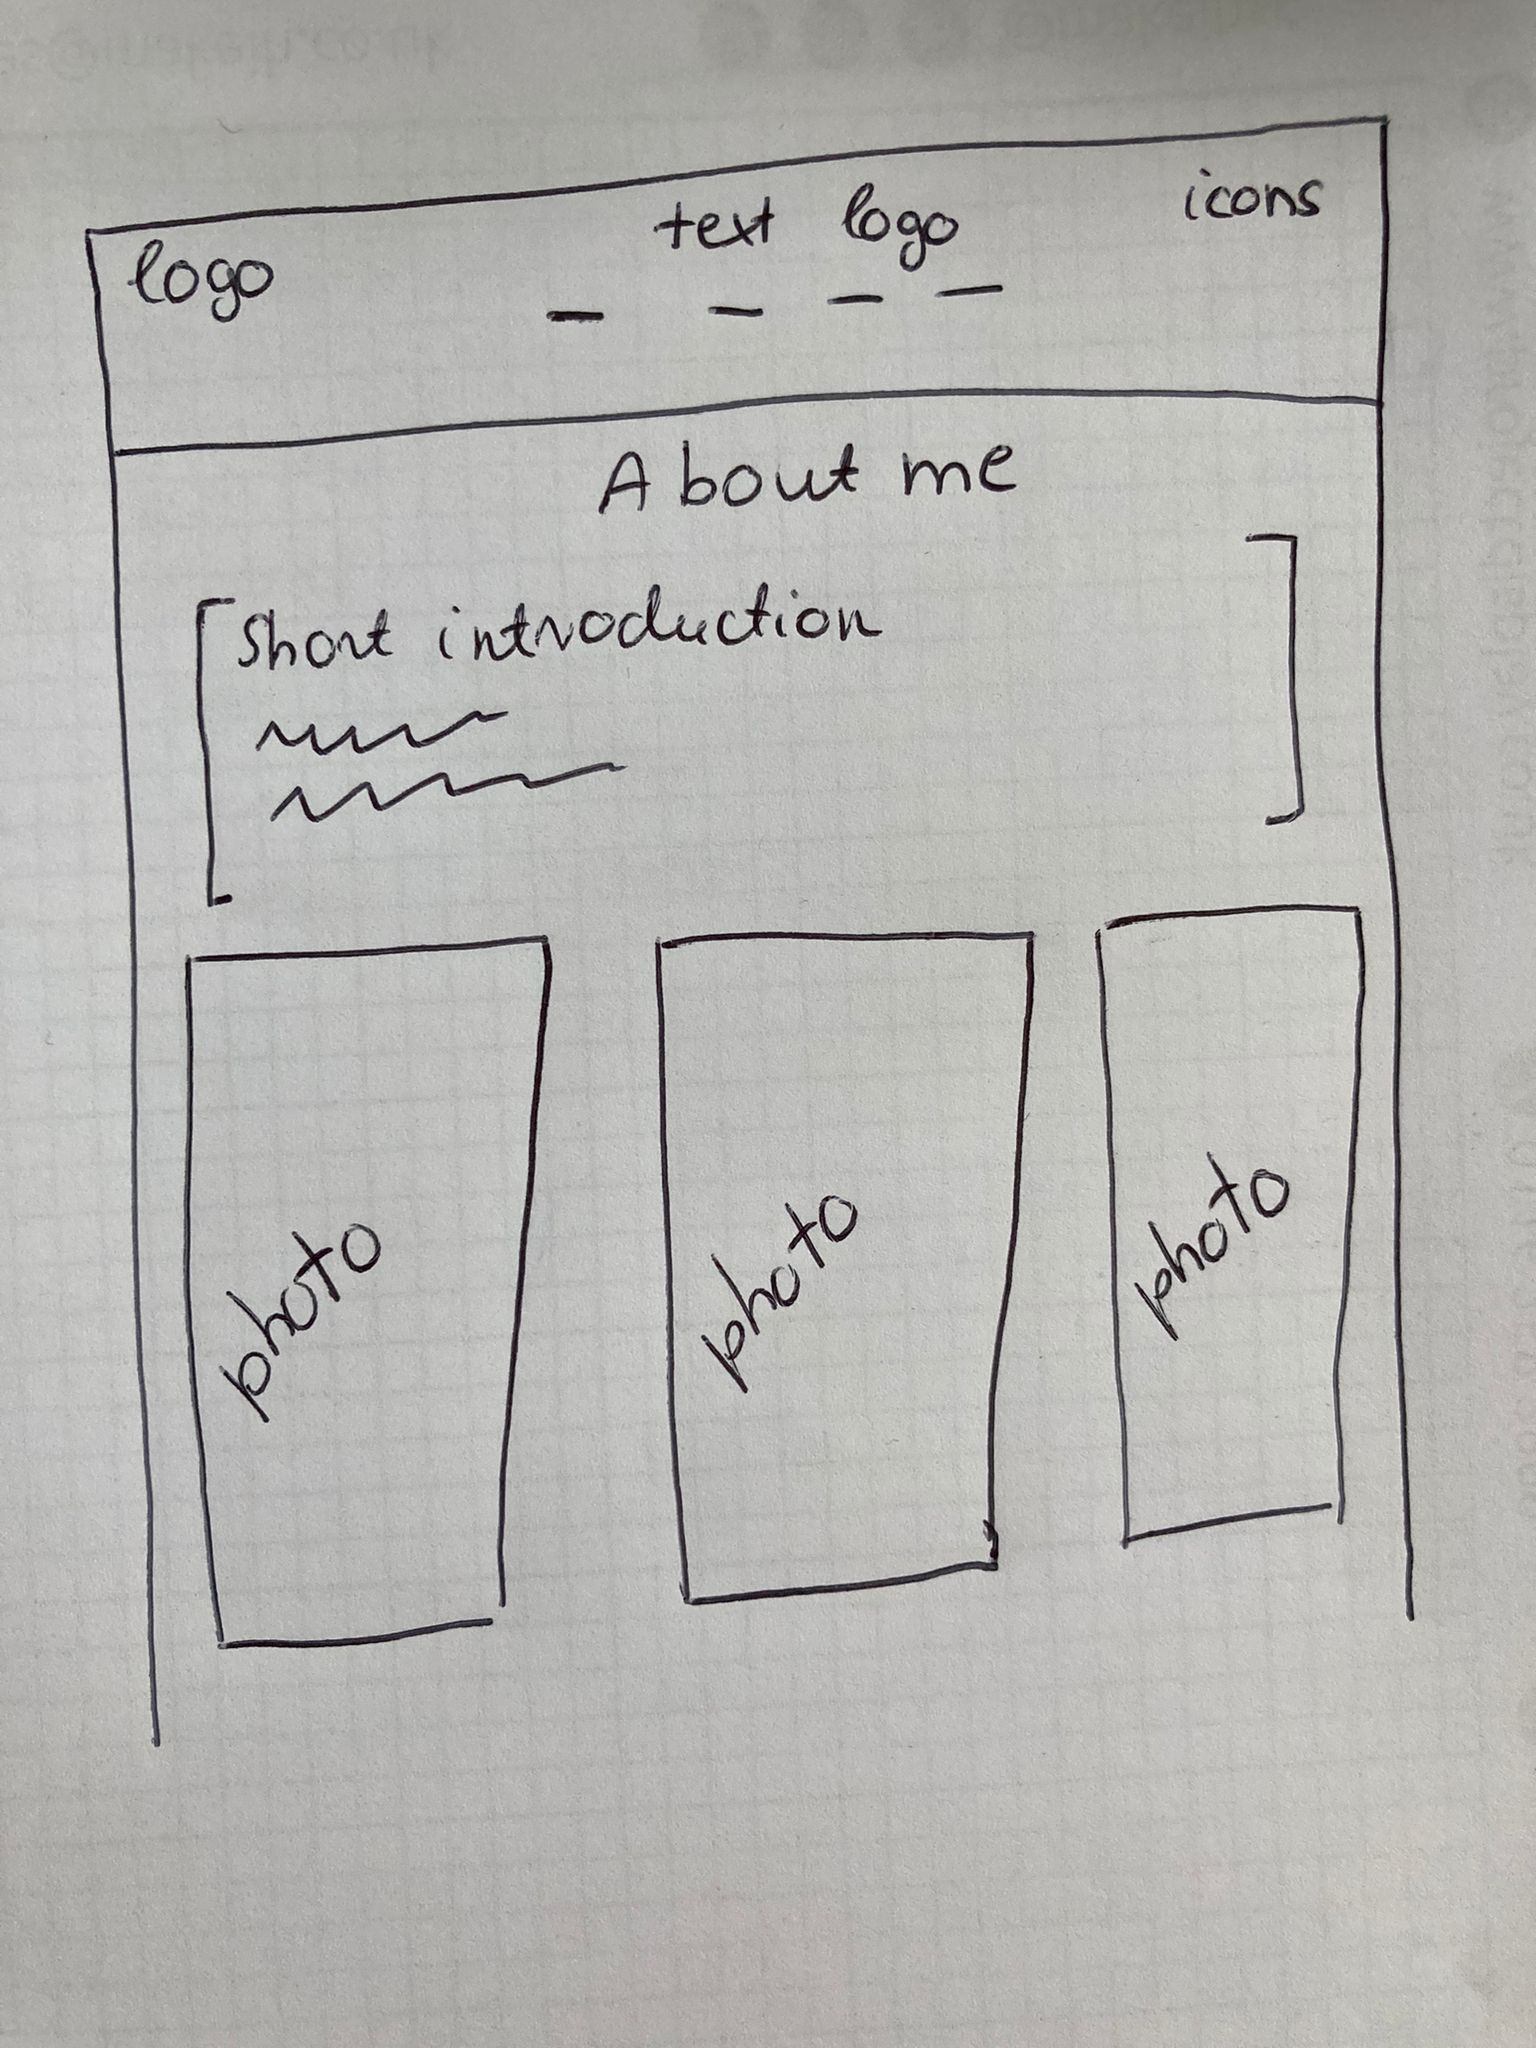 logo text logo icons
About me
Short introduction
photo photo photo